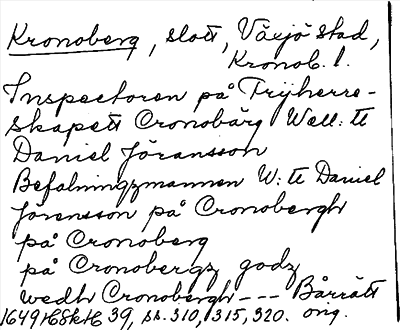 Kronoberg, slott, Växjö stad,
Kronob. l.
Inspectoren på Frijherre-
skapett Cronobärg Well: tt
Daniel Jöransson
Befalningzmannen W: tt Daniel
Jörensson på Cronobergh
på Cronoberg
på Cronobergz godz
wedh Cronobergh --- Bårrätt
1649 HSkH 39, ss. 310, 315, 320. orig.